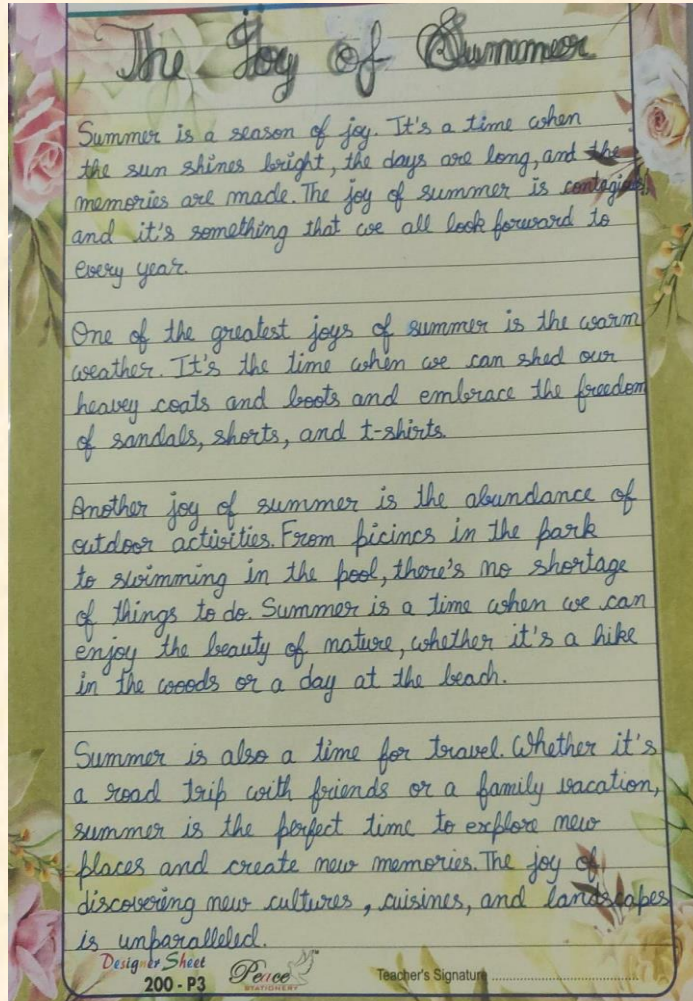 The Joy of Summer
Summer is a season of joy. It's a time when
the sun shines bright, the days are long, and the
memories are made. The joy of summer is contagious
and it's something that we all look forward to
every year.
One of the greatest joys of summer is the warm
weather. It's the time when we can shed our
heavey coats and boots and embrace the freedom
of sandals, shorts, and t-shirts.
Another joy of summer is the abundance of
outdoor activities. From picincs in the park
to swimming in the pool, there's no shortage
of things to do. Summer is a time when we can
enjoy the beauty of nature, whether it's a hike
in the woods or a day at the beach.
Summer is also a time for travel. Whether it's
a road trip with friends or a family vacation,
summer is the perfect time to explore new
places and create new memories. The joy of
discovering new cultures, cuisines, and landscapes
is unparalleled.
Designer Sheet
200 - P3
Peace
STATIONERY
TM
Teacher's Signature